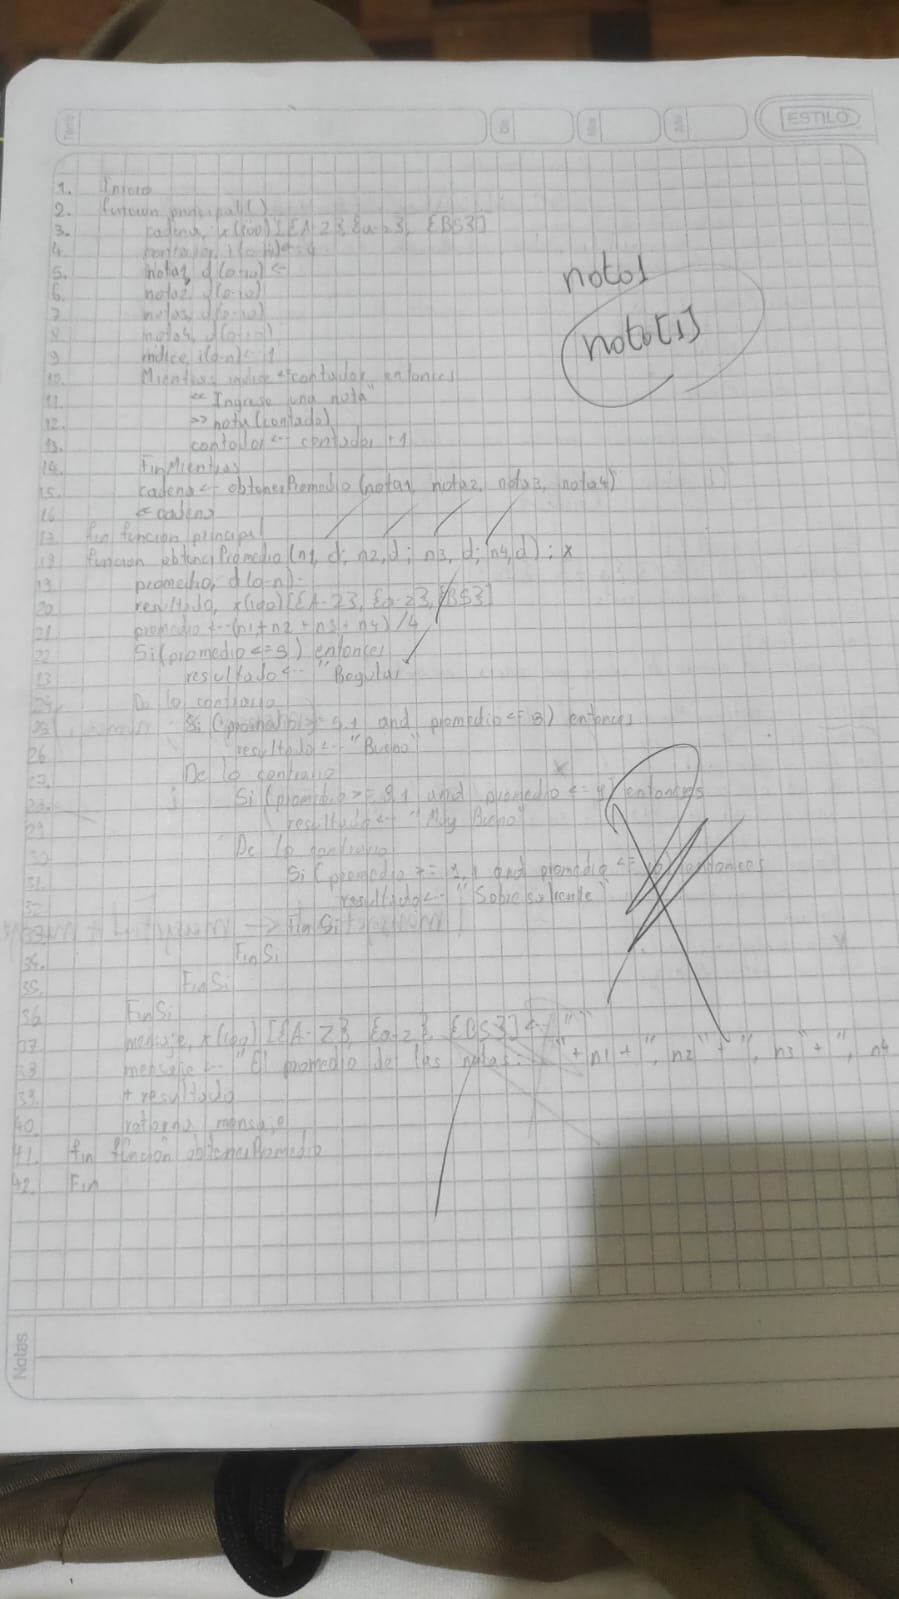 Tema
Día
Mes
Año
ESTILO
1. Inicio
2. función principal()
3. cadena, x(100)[{A-Z}, {a-z}, {BS}]
4. contador, i(0-n)<-4
5. nota1, d(0-10) <-
6. nota2, d(0-10)
7. nota3, d(0-10)
8. nota4, d(0-10)
9. indice, i(0-n)<-1
10. Mientras indice <= contador entonces
11. << "Ingrese una nota"
12. >> nota(contado)
13. contador <- contador +1
14. FinMientras
15. cadena <- obtenerPromedio (nota1, nota2, nota3, nota4)
16. << cadena
17. fin función principal
18. función obtenerPromedio (n1, d; n2,d; n3, d; n4,d) ; x
19. promedio, d(0-n)
20. resultado, x(100)[{A-Z}, {a-z}, {BS}]
21. promedio <- (n1+n2+n3+n4)/4
22. Si(promedio <=5) entonces
23. resultado <- "Regular"
24. De lo contrario
25. Si (promedio>= 5.1 and promedio <= 8) entonces
26. resultado <- "Bueno"
27. De lo contrario
28. Si (promedio >= 8.1 and promedio <= 9) entonces
29. resultado <- "Muy Bueno"
30. De lo contrario
31. Si (promedio >= and promedio <= 10) entonces
32. resultado <- "Sobresaliente"
33. Fin Si
34. Fin Si
35. Fin Si
36. Fin Si
37. mensaje, x(100) [{A-Z}, {a-z}, {BS}] <- " "
38. mensaje <- "El promedio de las notas: " + n1 + ", n2 " + ", n3 " + ", n4
39. + resultado
40. retorna mensaje
41. fin función obtenerPromedio
42. Fin
nota1
nota[1]
Notas